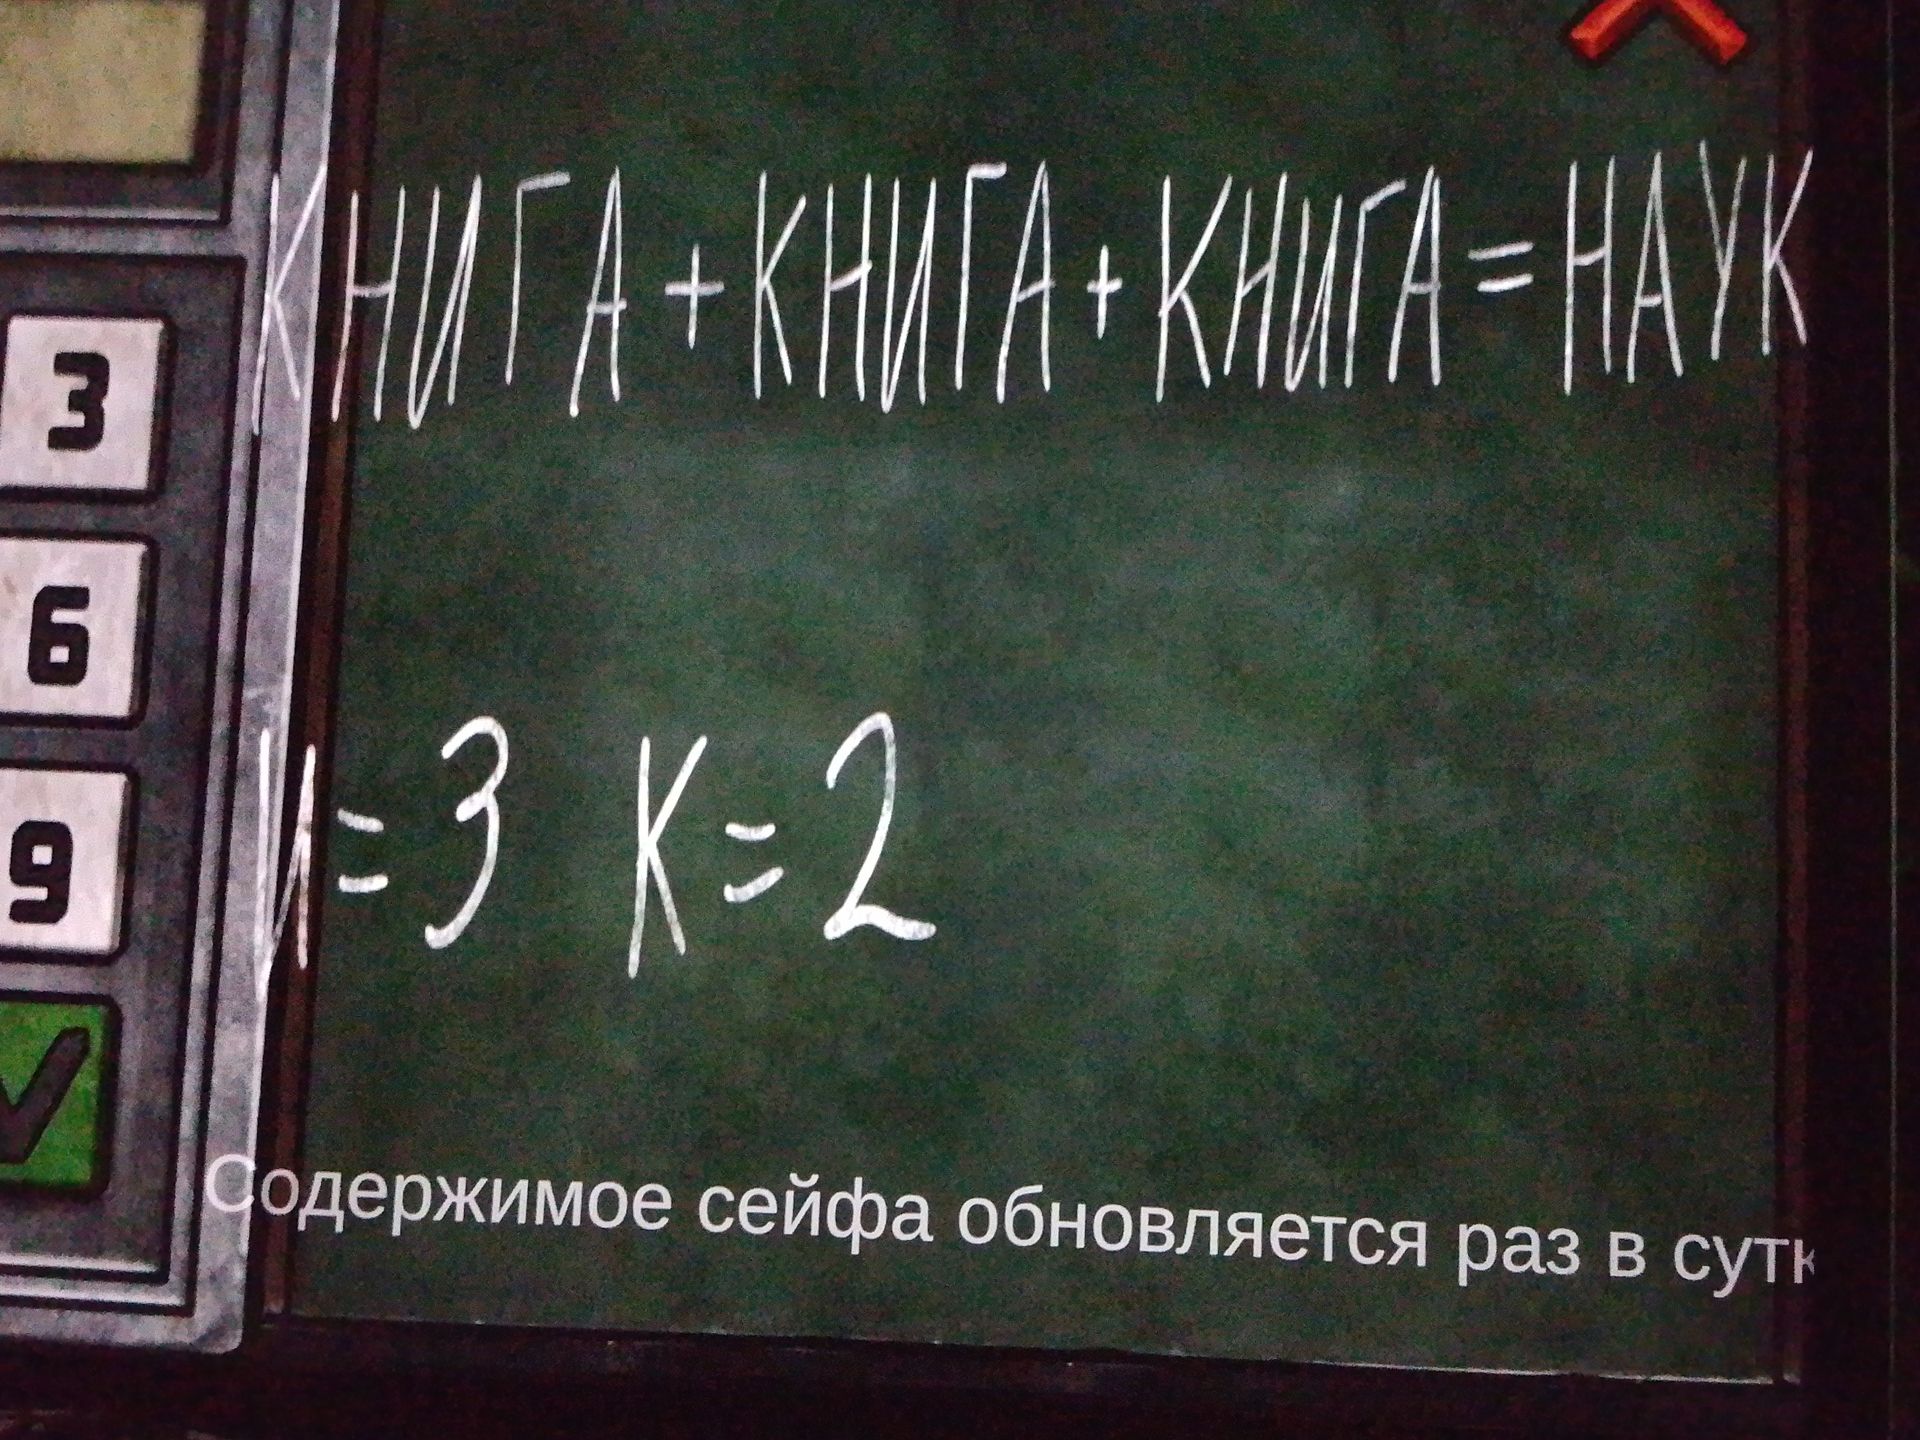 КНИГА + КНИГА + КНИГА = НАУК
3
6
И = 3 К = 2
9
Содержимое сейфа обновляется раз в сутк